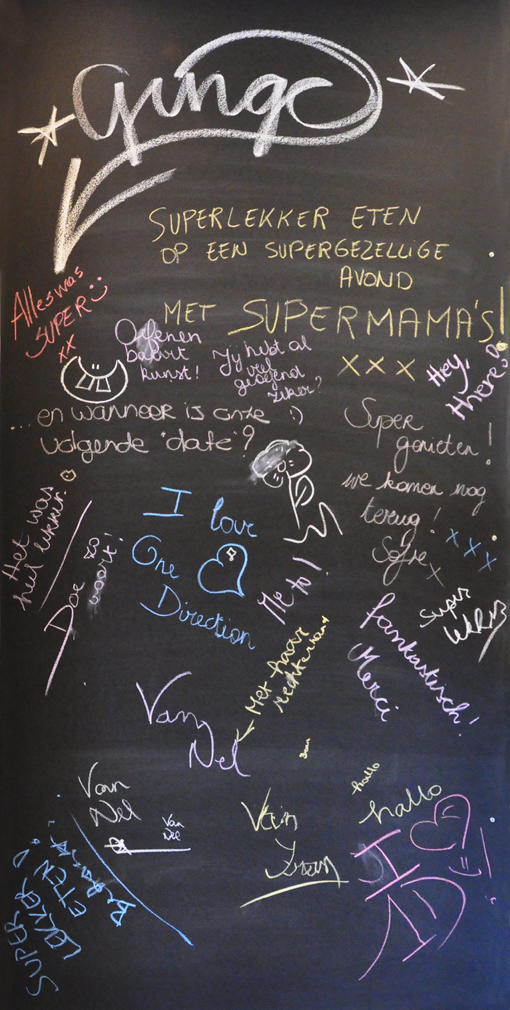 SUPERLEKKER ETEN
OP EEN SUPERGEZELLIGE
AVOND
MET SUPERMAMA'S!
x x x
Alles was
SUPER
xx
Oefenen
baart
kunst!
Jij hebt al
veel
geoefend
zeker?
:)
Hey,
there
... en wanneer is onze
volgende 'date'?
Super
genieten!
we komen nog
terug!
Sofie x
x x x
Het was
heel lekker
Doe zo
voort!
I love
One
Direction
Me to!
super
fantastisch!
Merci
Met haar
rechterhand
Van
Nel
Van
Nel
Van
Nel
Van
hallo
hallo
I
1D
SUPER
LEKKER
ETEN